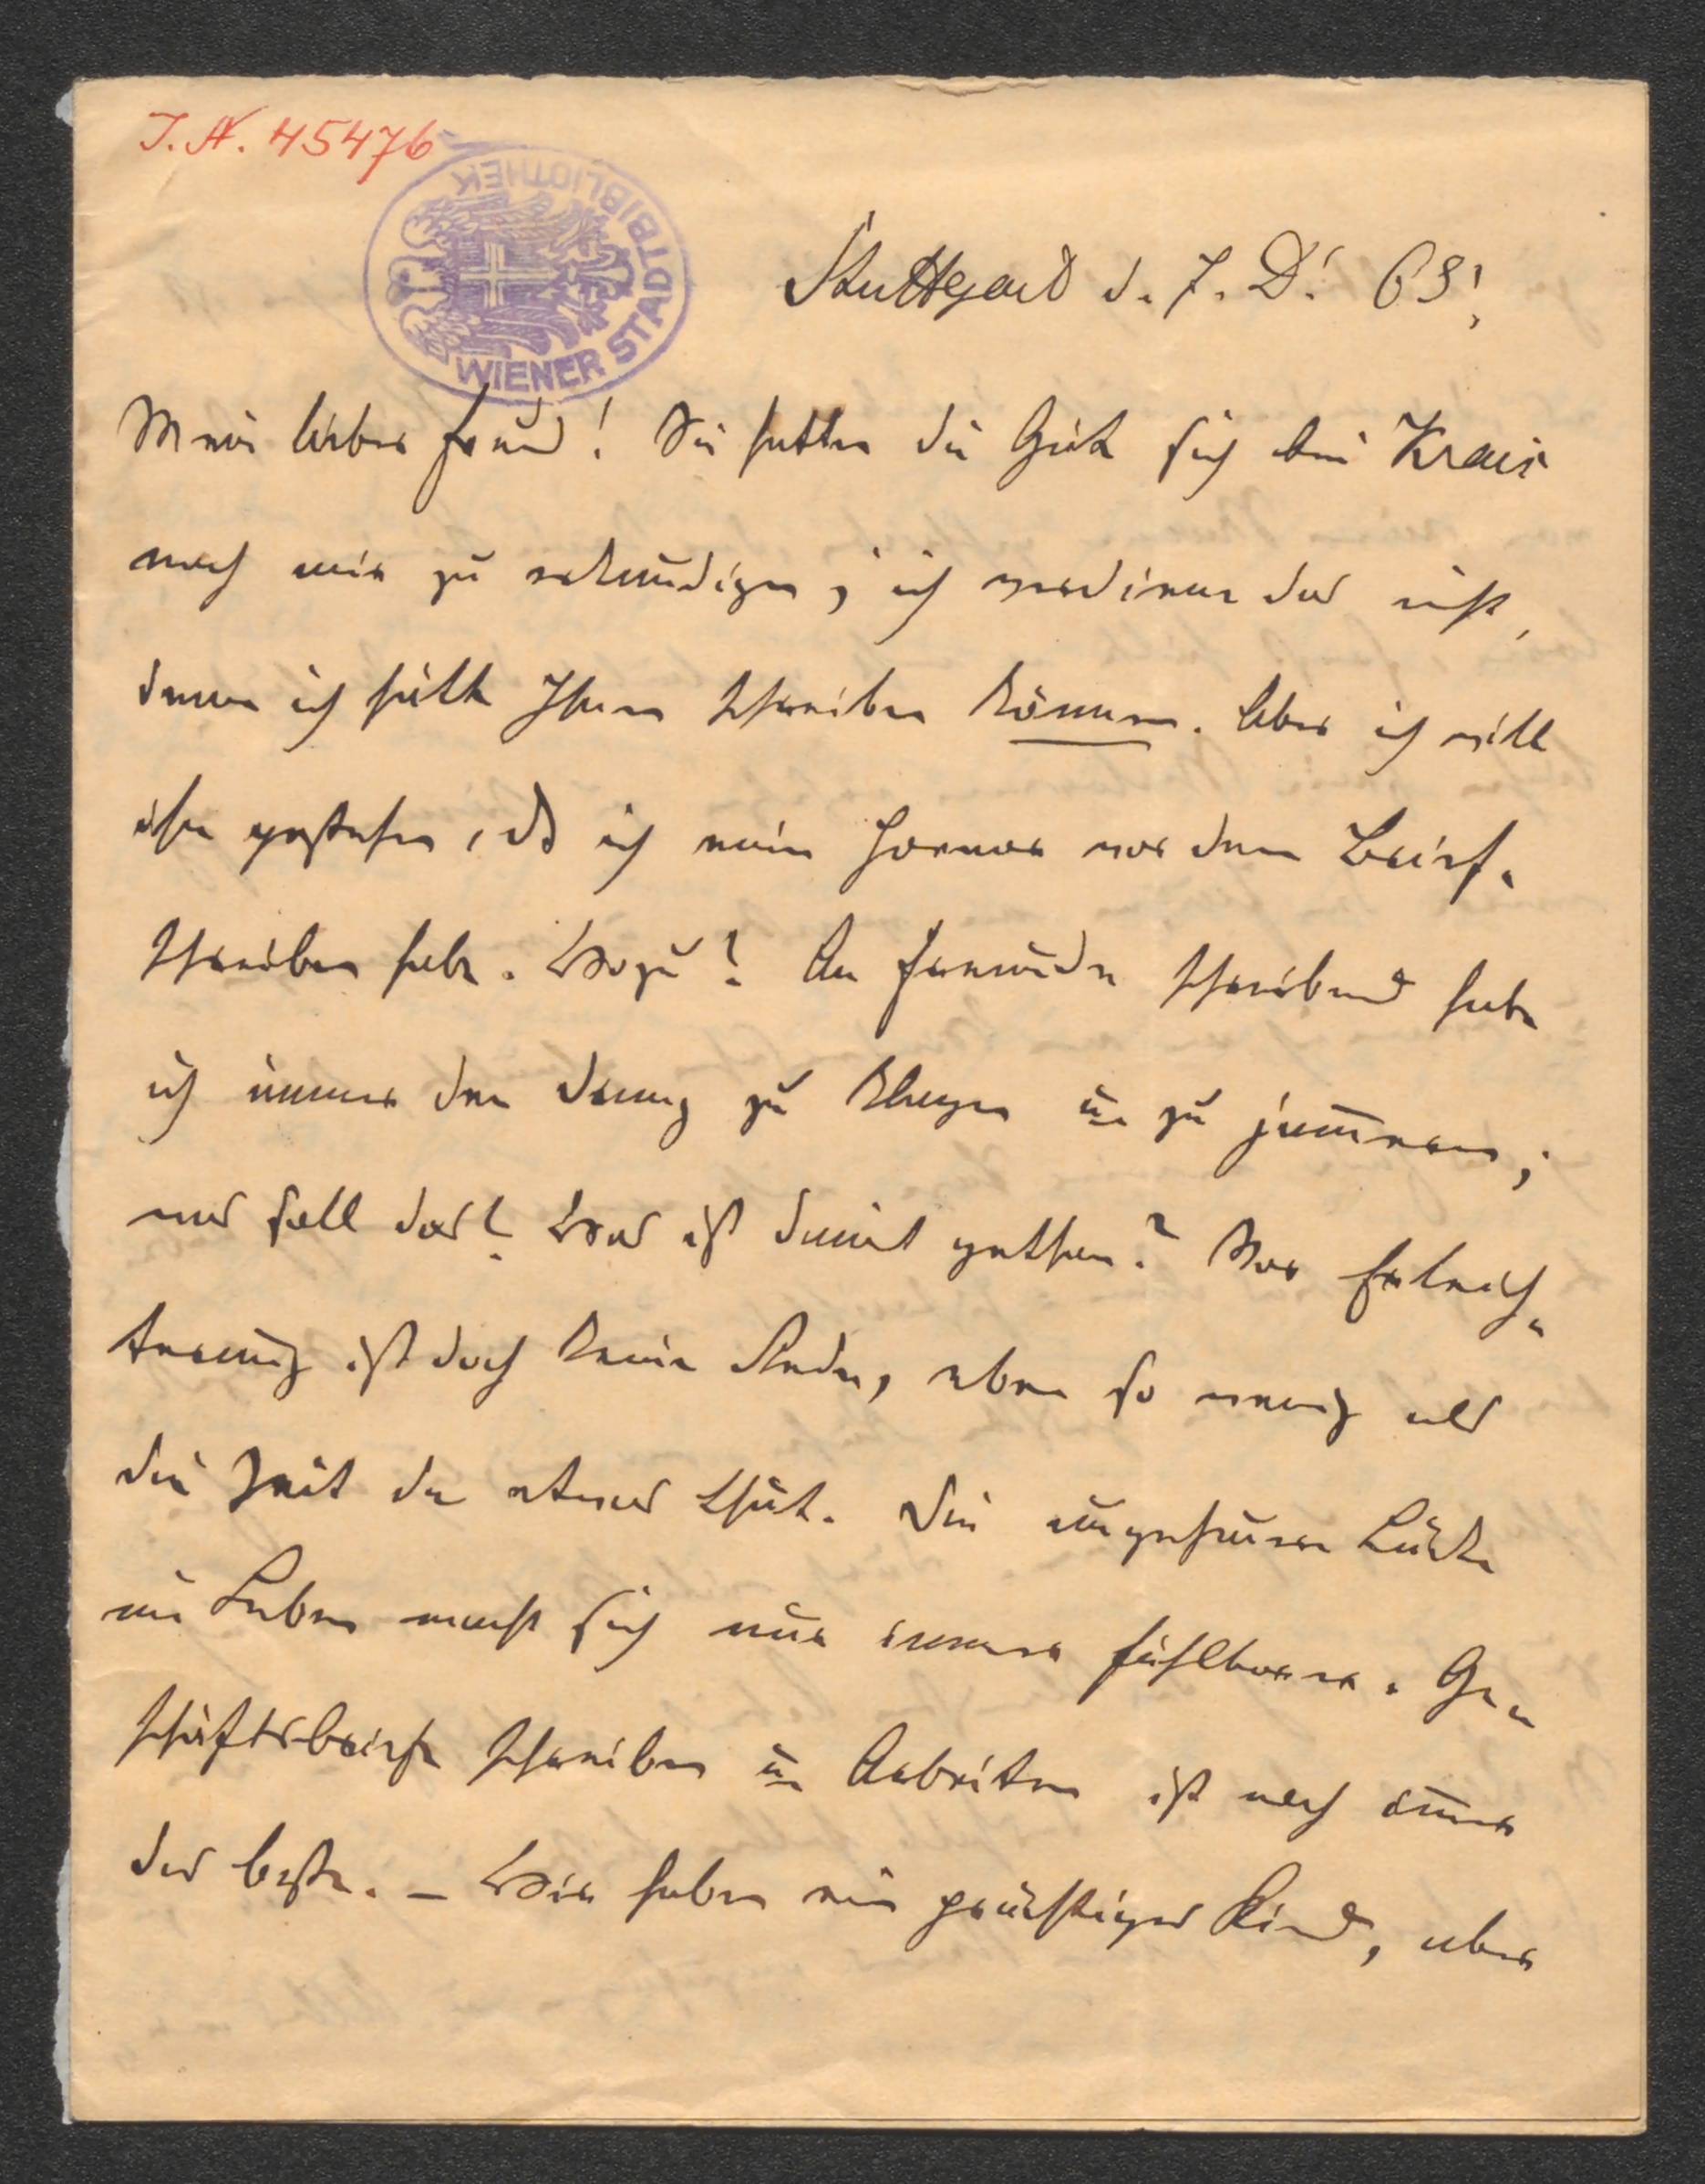 I.N. 45476
WIENER STADTBIBLIOTHEK
Stuttgard d. 7. D. 63.
Mein lieber Freund! Sie hatten die Güte sich bei Krais
nach mir zu erkundigen; ich verdiene das nicht,
denn ich hätte Ihnen schreiben können. Aber ich will
gestehen, dß ich einen Horror vor dem Brief-
schreiben habe. Wozu? An Freunde schreibend habe
ich immer den Drang zu klagen u. zu jam̄ern;
was soll das? Was ist damit gethan? Von Erleich-
terung ist doch keine Rede, eben so wenig als
die Zeit da etwas thut. Die ungeheure Lücke
im Leben macht sich nur immer fühlbarer. Ge-
schäftsbriefe schreiben u. Arbeiten ist noch im̄er
das beste. – Wir haben ein prächtiges Kind, aber